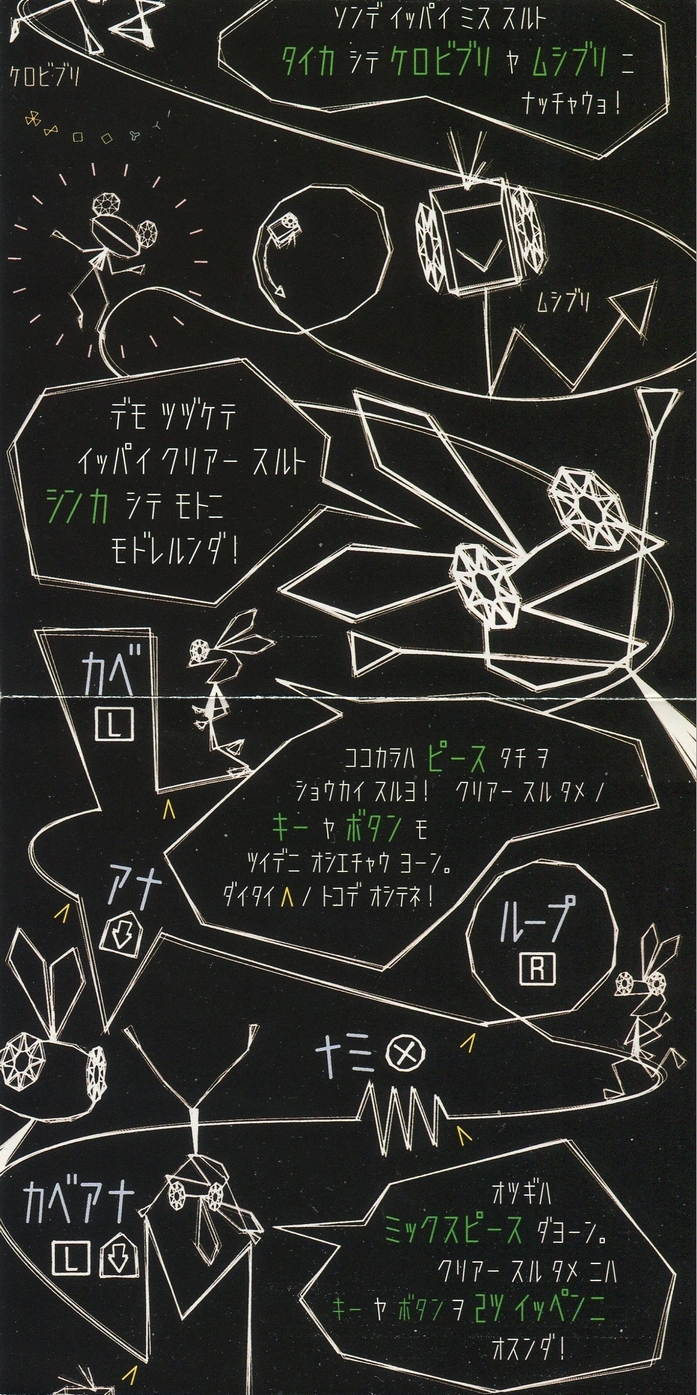 ソンデ イッパイ ミス スルト
タイカ シテ ケロビブリ ヤ ムシブリ ニ
ナッチャウョ！
ケロビブリ
ムシブリ
デモ ツヅケテ
イッパイ クリアー スルト
シンカ シテ モトニ
モドレルンダ！
カベ
L
ココカラハ ピース タチ ヲ
ショウカイ スルヨ！ クリアー スル タメ ノ
キー ヤ ボタン モ
ツイデニ オシエチャウ ヨーン。
ダイタイ ∧ ノ トコデ オシテネ！
アナ
ループ
R
ナミ
カベアナ
L
オツギハ
ミックスピース ダヨーン。
クリアー スル タメ ニハ
キー ヤ ボタン ヲ 2ツ イッペンニ
オスンダ！